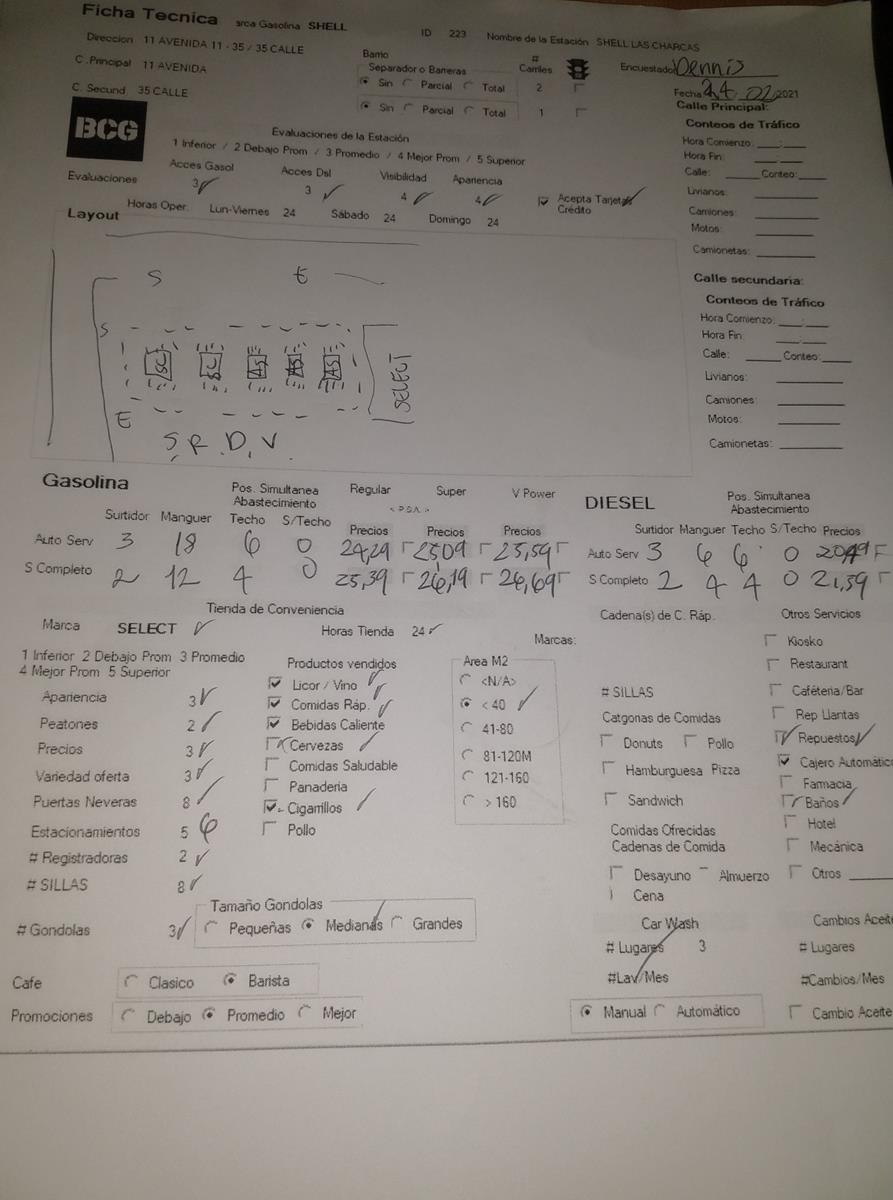 Ficha Tecnica arca Gasolina SHELL ID 223 Nombre de la Estación SHELL LAS CHARCAS
Direccion 11 AVENIDA 11 - 35 / 35 CALLE Barrio # Carriles Encuestador Dennis
C .Principal 11 AVENIDA Separador o Barreras
Sin Parcial Total 2 Fecha 24 02 2021
C. Secund 35 CALLE Sin Parcial Total 1
BCG
Evaluaciones de la Estación
1 Inferior / 2 Debajo Prom / 3 Promedio / 4 Mejor Prom / 5 Superior
Acces Gasol Acces Dsl Visibilidad Apariencia
Evaluaciones 3 3 4 4 Acepta Tarjetas Crédito
Horas Oper. Lun-Viernes 24 Sábado 24 Domingo 24
Calle Principal:
Conteos de Tráfico
Hora Comienzo: ___:___
Hora Fin: ___:___
Calle: _____ Conteo:_____
Livianos: _________
Camiones: _________
Motos: _________
Camionetas: _________
Calle secundaria:
Conteos de Tráfico
Hora Comienzo: ___:___
Hora Fin: ___:___
Calle: _____ Conteo:_____
Livianos: _________
Camiones: _________
Motos: _________
Camionetas: _________
Layout
S E
S
SC SC AS AS AS SELECT
E
S. R. D. V.
Gasolina
Pos. Simultanea Abastecimiento Regular Super V Power
< P.S.A. >
Surtidor Manguer Techo S/Techo Precios Precios Precios
Auto Serv 3 18 6 0 24,29 25,09 25,59
S Completo 2 12 4 0 25,39 26,19 26,69
DIESEL
Pos. Simultanea Abastecimiento
Surtidor Manguer Techo S/Techo Precios
Auto Serv 3 6 6 0
S Completo 2 4 4 0 21,59
Tienda de Conveniencia
Marca SELECT Horas Tienda 24
1 Inferior 2 Debajo Prom 3 Promedio
4 Mejor Prom 5 Superior
Apariencia 3
Peatones 2
Precios 3
Variedad oferta 3
Puertas Neveras 8
Estacionamientos 5 6
# Registradoras 2
# SILLAS 8
# Gondolas 3
Productos vendidos
Licor / Vino
Comidas Ráp.
Bebidas Caliente
Cervezas
Comidas Saludable
Panaderia
Cigarrillos
Pollo
Area M2
<N/A>
< 40
41-80
81-120M
121-160
> 160
Tamaño Gondolas
Pequeñas Medianas Grandes
Cafe Clasico Barista
Promociones Debajo Promedio Mejor
Cadena(s) de C. Ráp.
Marcas:
# SILLAS
Catgorias de Comidas
Donuts Pollo
Hamburguesa Pizza
Sandwich
Comidas Ofrecidas
Cadenas de Comida
Desayuno Almuerzo
Cena
Otros Servicios
Kiosko
Restaurant
Caféteria/Bar
Rep Llantas
Repuestos
Cajero Automátic
Farmacia
Baños
Hotel
Mecánica
Otros _____
Car Wash
# Lugares 3
#Lav/Mes
Manual Automático
Cambios Aceite
# Lugares
#Cambios/Mes
Cambio Aceite